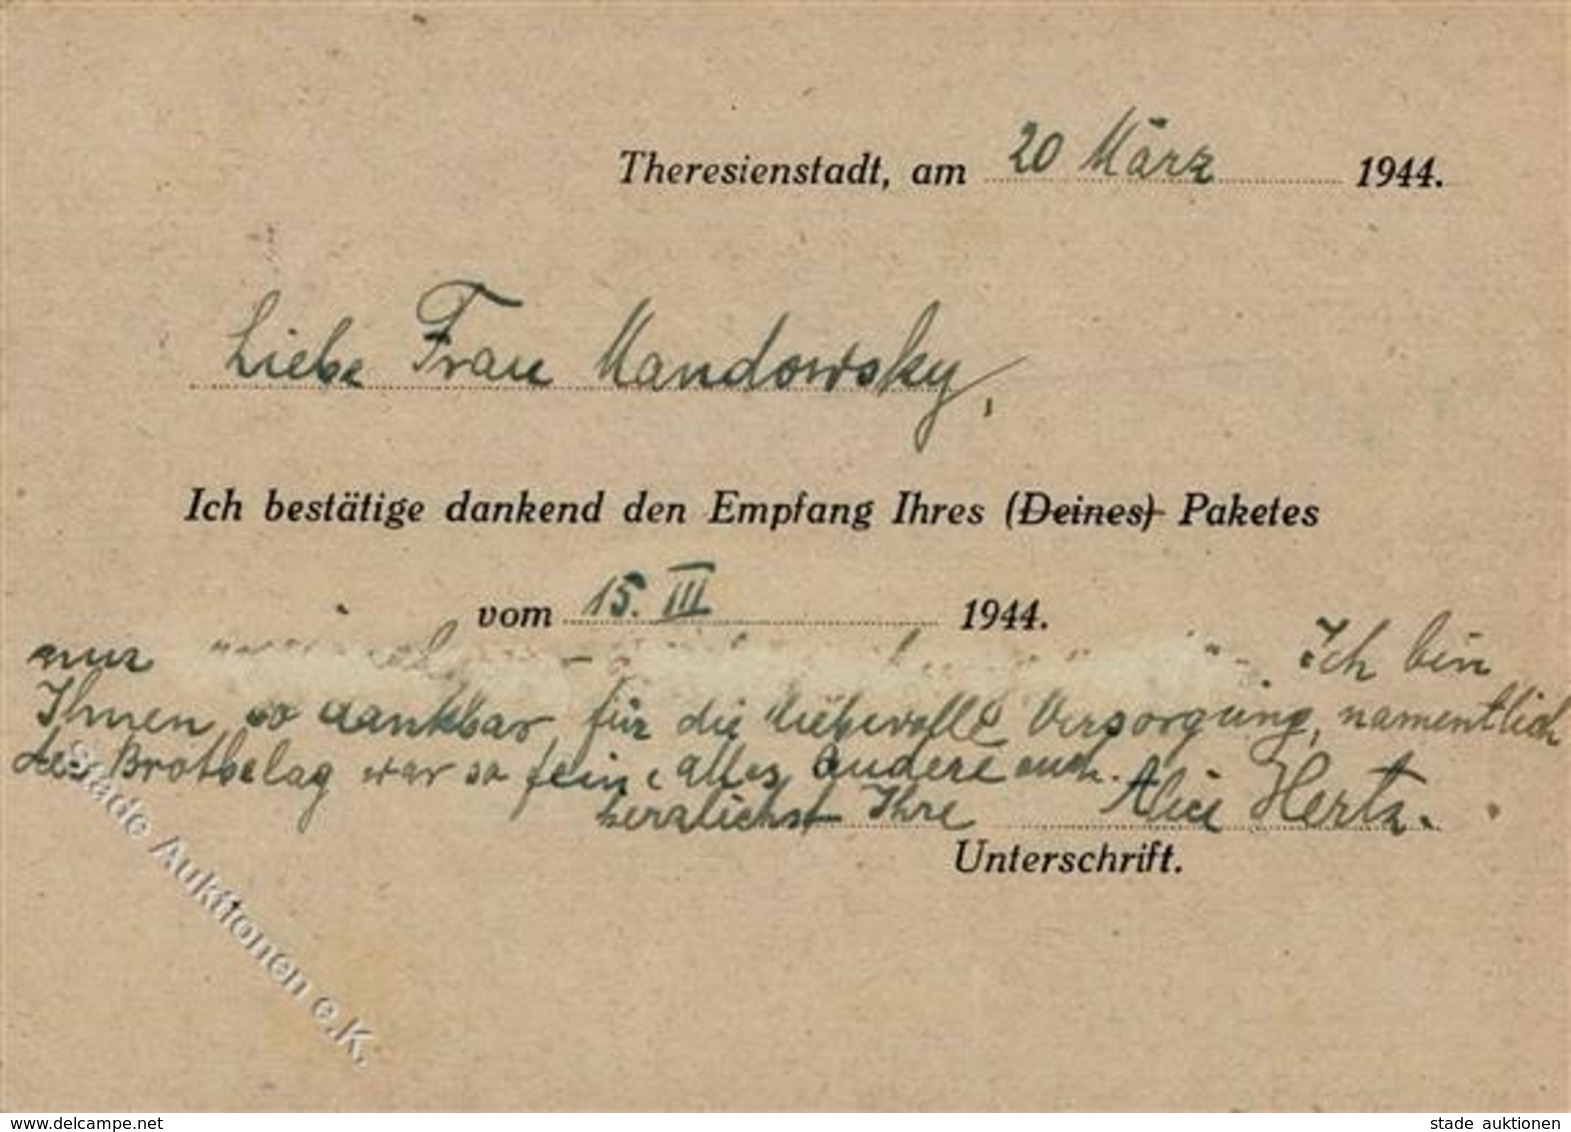 Theresienstadt, am 20 März 1944.
Liebe Frau Mandowsky,
Ich bestätige dankend den Empfang Ihres (Deines) Paketes
vom 15. III 1944.
nur Ich bin
Ihnen so dankbar für die liebevolle Versorgung, namentlich
der Brotbelag war so fein, alles andere auch.
herzlichst Ihre Alice Hertz.
Unterschrift.
Stade Auktionen e.K.
www.delcampe.net stade auktionen